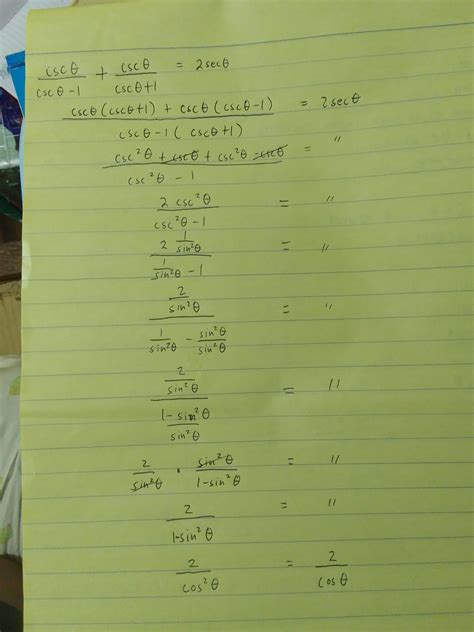 cscθ/(cscθ-1) + cscθ/(cscθ+1) = 2secθ
(cscθ(cscθ+1) + cscθ(cscθ-1))/(cscθ-1(cscθ+1)) = 2secθ
(csc²θ + cscθ + csc²θ - cscθ)/(csc²θ - 1) = "
(2 csc²θ)/(csc²θ-1) = "
(2 1/sin²θ)/(1/sin²θ - 1) = "
(2/sin²θ)/(1/sin²θ - sin²θ/sin²θ) = "
(2/sin²θ)/((1-sin²θ)/sin²θ) = "
2/sin²θ · sin²θ/(1-sin²θ) = "
2/(1-sin²θ) = "
2/cos²θ = 2/cosθ